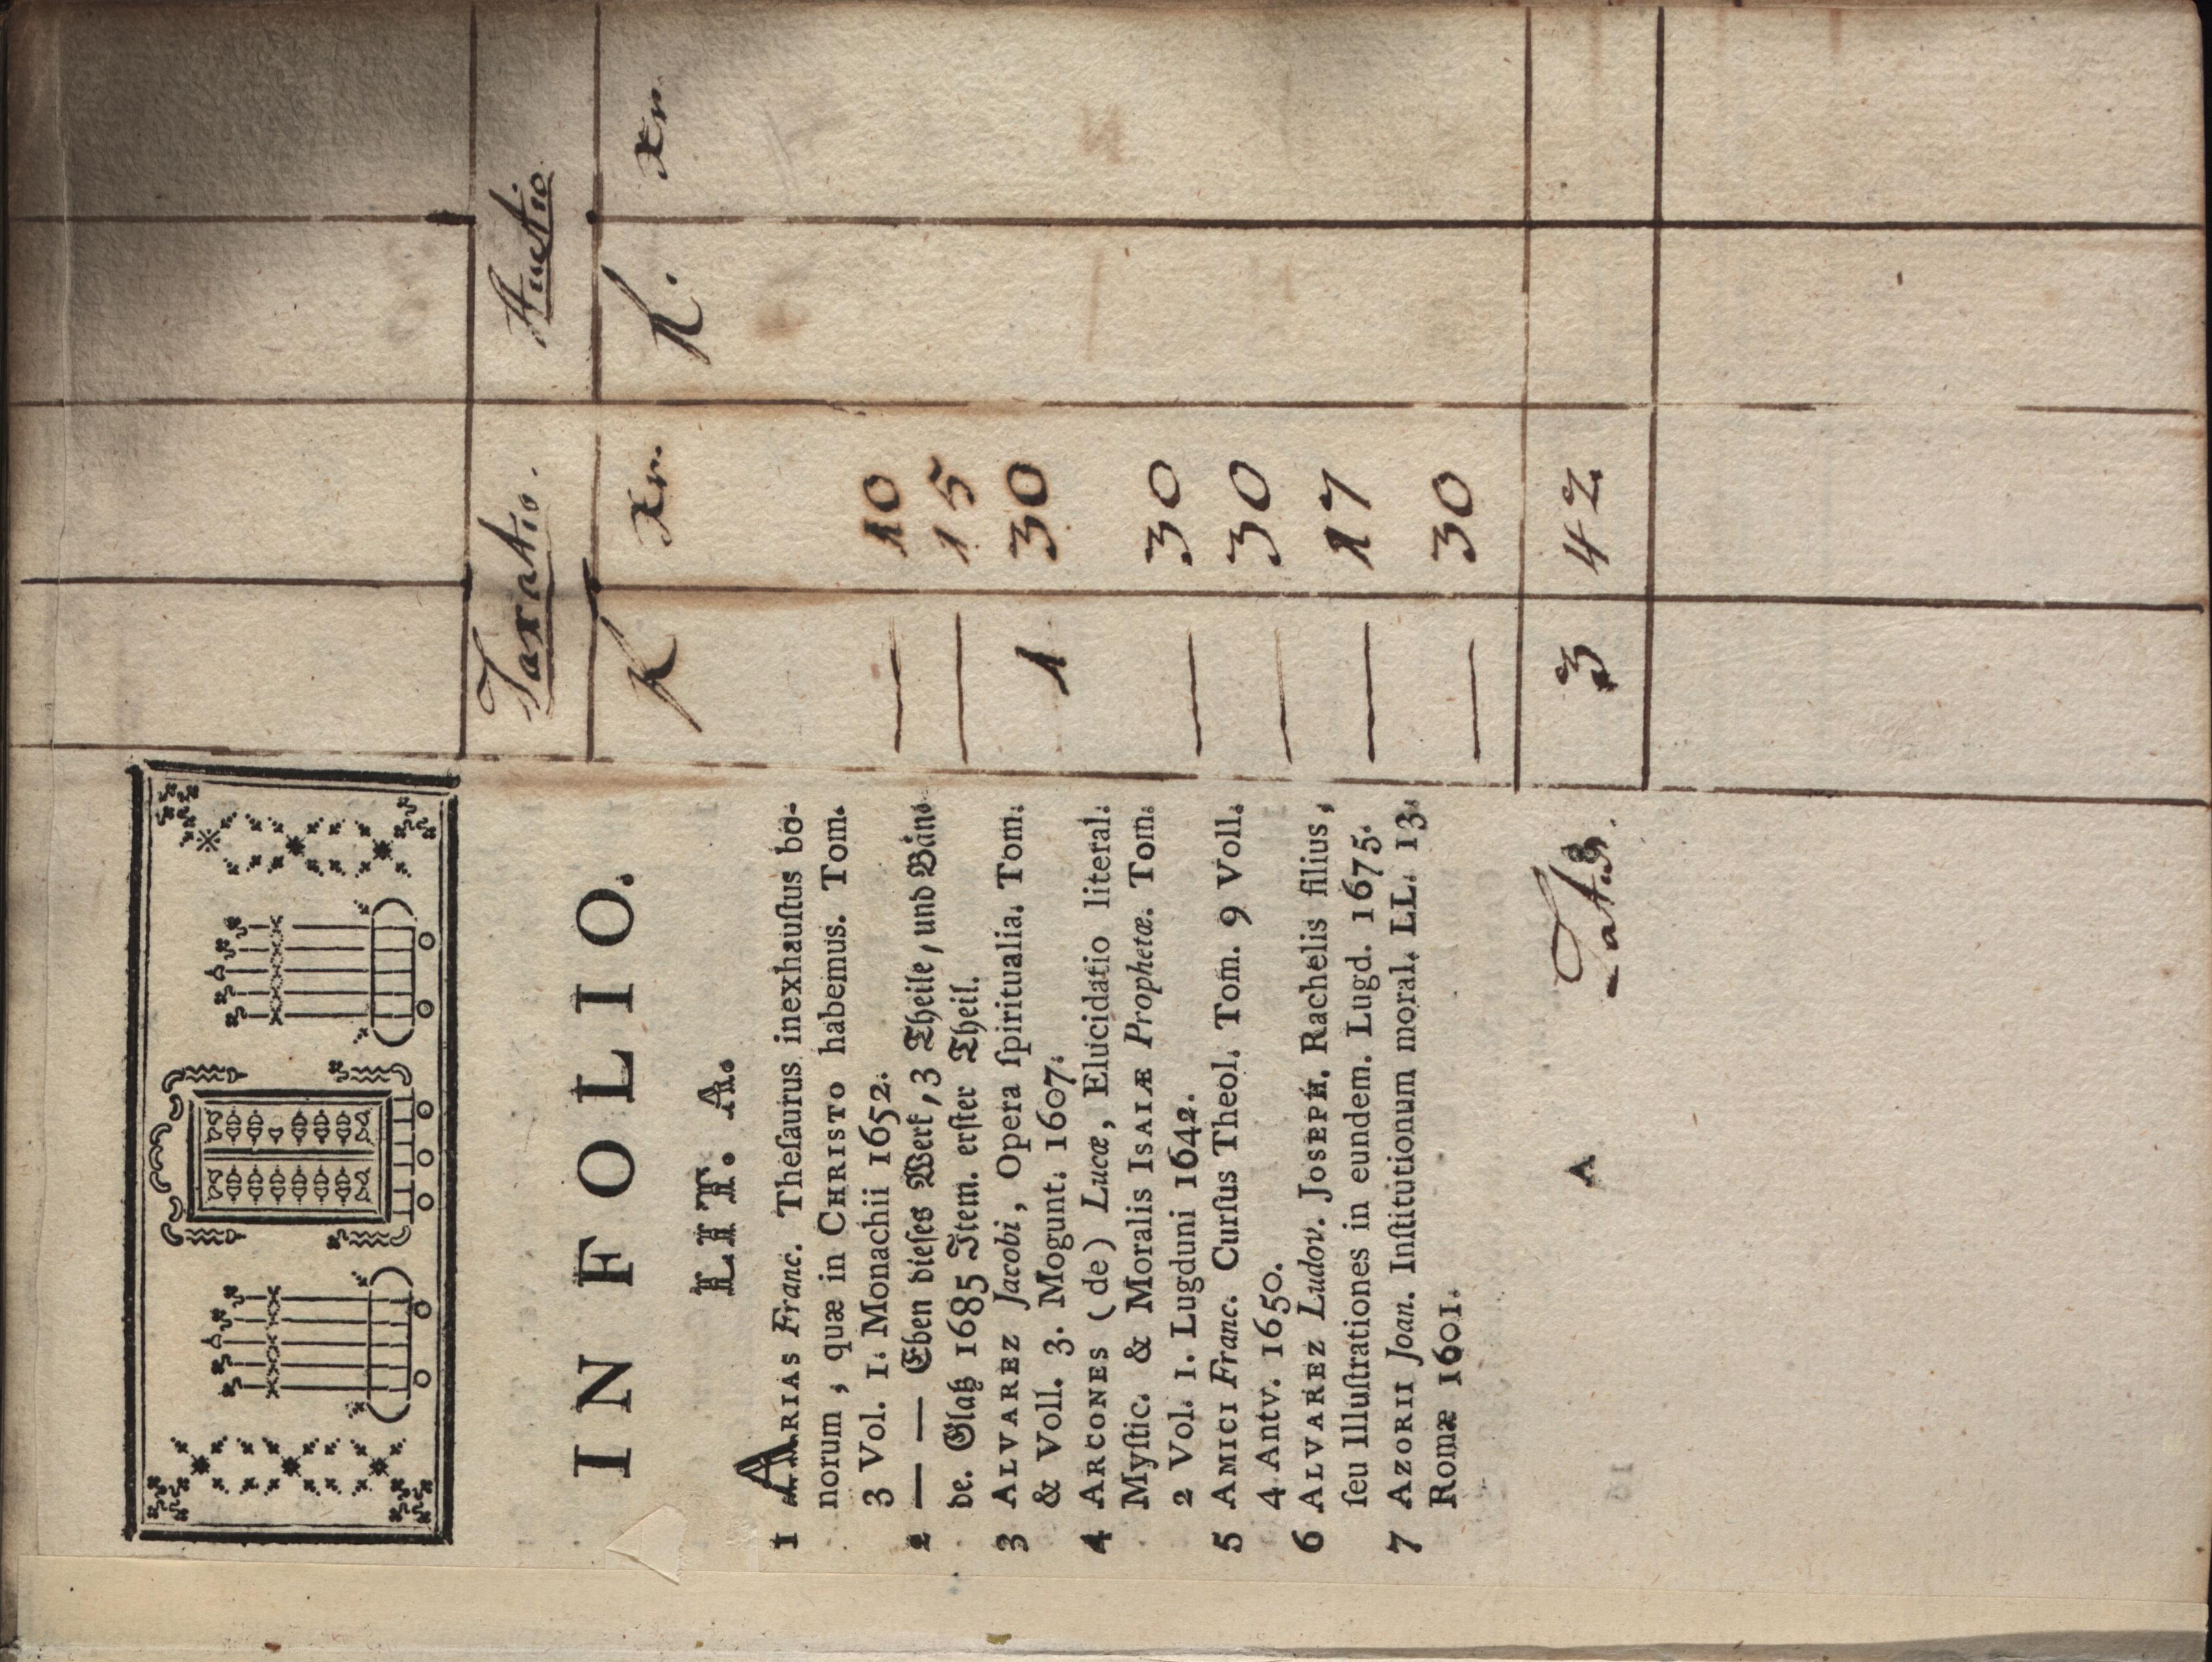 Taxatio. Auctio
f xr. f. xr.
IN FOLIO.
LIT. A.
1 ARIAS Franc. Theſaurus inexhauſtus bo-
norum, quæ in CHRISTO habemus. Tom.
3 Vol. 1. Monachii 1652. — 10
2 — — Eben dieſes Werk, 3 Theile, und Bän-
de. Glatz 1685 Item. erſter Theil. — 15
3 ALVAREZ Jacobi, Opera ſpiritualia. Tom.
& Voll. 3. Mogunt. 1607. 1 30
4 ARCONES (de) Lucæ, Elucidatio literal.
Myſtic. & Moralis ISAIÆ Prophetæ. Tom.
2 Vol. 1. Lugduni 1642. — 30
5 AMICI Franc. Curſus Theol. Tom. 9 Voll.
4 Antv. 1650. — 30
6 ALVAREZ Ludov. JOSEPH. Rachelis filius,
ſeu Illuſtrationes in eundem. Lugd. 1675. — 17
7 AZORII Joan. Inſtitutionum moral. LL. 13.
Romæ 1601. — 30
Latus. 3 42.
A